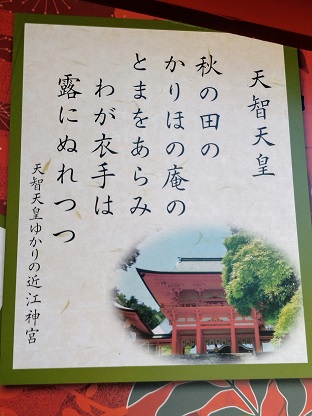 天智天皇
秋の田の
かりほの庵の
とまをあらみ
わが衣手は
露にぬれつつ
天智天皇ゆかりの近江神宮